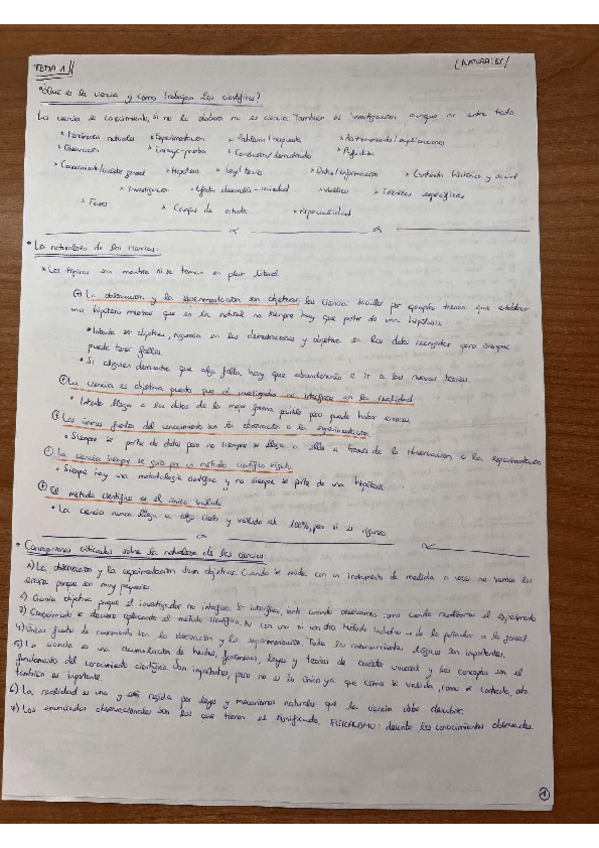 TEMA 1 (NATURALES)
¿Qué es la ciencia y como trabajan los científicos?
La ciencia es conocimiento, si no le elabora no es ciencia. También es investigación aunque no entre todo
* Fenómenos naturales * Experimentación * Problema/respuesta * Razonamiento/explicaciones
* Observación * Ensayo-prueba * Conclusión/demostrado * Reflexión
* Conocimiento/saber general * Hipótesis * Ley/teoría * Datos/información * Contexto histórico y social
* Investigación * desarrollo-sociedad * Técnicas específicas
* Tesis * Campos de estudio
• La naturaleza de las ciencias:
* Los tópicos son mentira si se toman en plan literal.
La observación y la experimentación son objetivas las ciencia sociales por ejemplo tienen que establecer
una hipótesis mientras que en la natural no siempre hay que partir de una hipótesis.
• Intenta ser objetiva, rigurosa en las demostraciones y objetiva en los datos recogidos pero siempre
puede tener fallos.
• Si alguien demuestra que algo falla hay que abandonarla e ir a las nuevas teorías.
La ciencia es objetiva puesto que el investigador no interfiere en la realidad
• Intenta llegar a los datos de la mejor forma posible pero puede haber errores.
Las únicas fuentes del conocimiento son la observación o la experimentación
• Siempre se parte de datos pero no siempre se llega a ellos a través de la observación o la experimentación
La ciencia siempre se guía por un método científico rígido
• Siempre hay una metodología científica y no siempre se parte de una hipótesis
El método científico es el único válido
• La ciencia nunca llega a algo cierto y válido al 100%, pero si es riguroso
• Concepciones criticadas sobre la naturaleza de las ciencias:
1) La observación y la experimentación son objetivas. Cuando se mide con un instrumento de medida a veces no vemos los
errores porque son muy pequeños.
2) Ciencia objetiva porque el investigador no interfiere. Si interfiere, tanto cuando observamos como cuando realizamos el experimento
3) Conocimiento se descubre aplicando el método científico. Ni con uno ni con otro método inductivo → de lo particular a lo general.
4) Únicas fuentes de conocimiento son la observación y la experimentación. Todos los razonamientos lógicos son importantes.
5) La ciencia es una acumulación de hechos, fenómenos, leyes y teorías de carácter universal y los conceptos son el
fundamento del conocimiento científico. Son importantes, pero no es lo único ya que como se valida, como se contrasta, etc
también es importante.
6) La realidad es una y está regida por leyes y mecanismos naturales que la ciencia debe describir.
7) Los enunciados observacionales son los que tienen el significado. FISICALISMO: describe los conocimientos observados.
1